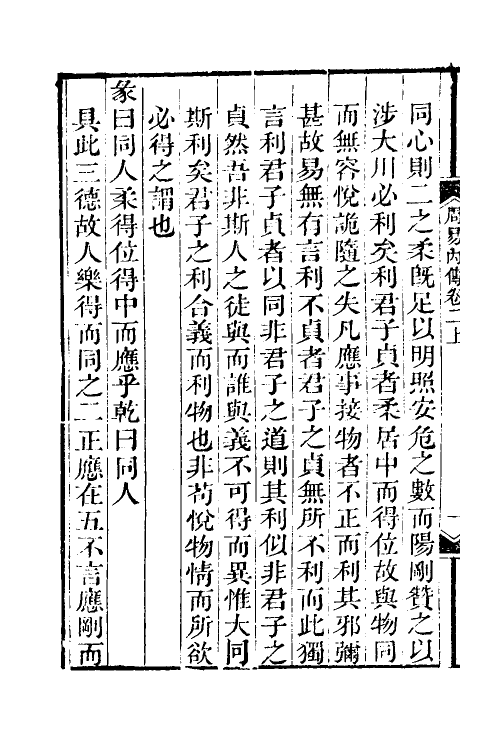 周易內傳卷二上
一
同心則二之柔旣足以明照安危之數而陽剛贊之以
涉大川必利矣利君子貞者柔居中而得位故與物同
而無容悅詭隨之失凡應事接物者不正而利其邪彌
甚故易無有言利不貞者君子之貞無所不利而此獨
言利君子貞者以同非君子之道則其利似非君子之
貞然吾非斯人之徒與而誰與義不可得而異惟大同
斯利矣君子之利合義而利物也非苟悅物情而所欲
必得之謂也
彖曰同人柔得位得中而應乎乾曰同人
具此三德故人樂得而同之二正應在五不言應剛而